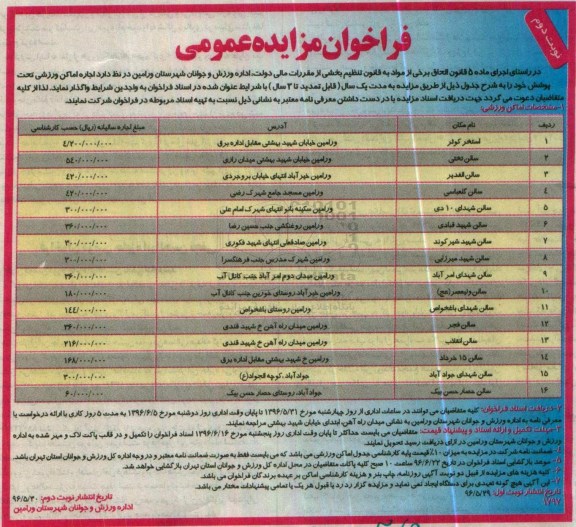 نوبت دوم
فراخوان مزایده عمومی
در راستای اجرای ماده ۵ قانون الحاق برخی از مواد به قانون تنظیم بخشی از مقررات مالی دولت، اداره ورزش و جوانان شهرستان ورامین در نظر دارد اجاره اماکن ورزشی تحت
پوشش خود را به شرح جدول ذیل از طریق مزایده به مدت یک سال (قابل تمدید تا ۳ سال) با شرایط عنوان شده در اسناد فراخوان به واجدین شرایط واگذار نماید. لذا از کلیه
متقاضیان دعوت می گردد جهت دریافت اسناد مزایده با در دست داشتن معرفی نامه معتبر به نشانی ذیل نسبت به تهیه اسناد مربوطه در فراخوان شرکت نمایند.
۱-مشخصات اماکن ورزشی:
ردیف نام مکان آدرس مبلغ اجاره سالیانه (ریال) حسب کارشناسی
۱ استخر کوثر ورامین خیابان شهید بهشتی مقابل اداره برق ۴/۲۰۰/۰۰۰/۰۰۰
۲ سالن تختی ورامین خیابان شهید بهشتی میدان رازی ۵۴۰/۰۰۰/۰۰۰
۳ سالن الغدیر ورامین خیرآباد انتهای خیابان بروجردی ۴۲۰/۰۰۰/۰۰۰
۴ سالن گلعباسی ورامین مسجد جامع شهرک رضی ۴۲۰/۰۰۰/۰۰۰
۵ سالن شهدای ۱۰ دی ورامین سکینه بانو انتهای شهرک امام علی ۳۰۰/۰۰۰/۰۰۰
۶ سالن شهید قبادی ورامین روغنکشی جنب حسین رضا ۳۶۰/۰۰۰/۰۰۰
۷ سالن شهید شیرکوند ورامین صادقعلی انتهای شهید فکوری ۳۰۰/۰۰۰/۰۰۰
۸ سالن شهید میرزایی ورامین شهرک مدرس جنب فرهنگسرا ۳۰۰/۰۰۰/۰۰۰
۹ سالن شهدای امرآباد ورامین میدان دوم امرآباد جنب کانال آب ۳۶۰/۰۰۰/۰۰۰
۱۰ سالن ولیعصر(عج) ورامین خیرآباد روستای خورین جنب کانال آب ۱۸۰/۰۰۰/۰۰۰
۱۱ سالن شهدای باغخواص ورامین روستای باغخواص ۱۴۴/۰۰۰/۰۰۰
۱۲ سالن فجر ورامین میدان راه آهن خ شهید قندی ۲۶۰/۰۰۰/۰۰۰
۱۳ سالن انقلاب ورامین میدان راه آهن خ شهید قندی ۲۱۶/۰۰۰/۰۰۰
۱۴ سالن ۱۵ خرداد ورامین خ شهید بهشتی مقابل اداره برق ۱۶۸/۰۰۰/۰۰۰
۱۵ سالن شهدای جوادآباد جوادآباد، کوچه الجواد(ع) ۳۰۰/۰۰۰/۰۰۰
۱۶ سالن حصار حسن بیک جوادآباد، روستای حصار حسن بیک ۶۰/۰۰۰/۰۰۰
۲-دریافت اسناد فراخوان: کلیه متقاضیان می توانند در ساعات اداری از روز چهارشنبه مورخ ۱۳۹۶/۵/۳۱ تا پایان وقت اداری روز دوشنبه مورخ ۱۳۹۶/۶/۵ به مدت ۵ روز کاری با ارائه درخواست یا
معرفی نامه به اداره ورزش و جوانان شهرستان ورامین به نشانی میدان راه آهن، ابتدای خیابان شهید بهشتی مراجعه نمایند.
۳-مهلت تکمیل و ارائه اسناد و پیشنهاد قیمت: متقاضیان می بایست حداکثر تا پایان وقت اداری روز پنجشنبه مورخ ۱۳۹۶/۶/۱۶ اسناد فراخوان را تکمیل و در قالب پاکت لاک و مهر شده به اداره
ورزش و جوانان شهرستان ورامین در ازای دریافت رسید تحویل نمایند.
۴- ضمانت نامه شرکت در مزایده به میزان ۱۰٪ قیمت پایه کارشناسی جدول اماکن ورزشی می باشد که می بایست فقط به صورت ضمانت نامه معتبر و در وجه اداره کل ورزش و جوانان استان تهران باشد.
۵- موعد بازگشایی اسناد فراخوان در تاریخ ۹۶/۶/۲۲ ساعت ۱۰ صبح کلیه پاکات متقاضیان در محل اداره کل ورزش و جوانان استان تهران بازگشایی خواهد شد.
۶- کلیه هزینه های مزایده از قبیل دو نوبت آگهی روزنامه، چاپ بنر و هزینه کارشناسی اماکن بر عهده برندگان فراخوان می باشد.
۷- این آگهی هیچ گونه تعهدی برای دستگاه ایجاد نمی نماید و مزایده گزار در رد یا قبول هر یک یا تمامی پیشنهادات مختار می باشد.
تاریخ انتشار نوبت اول: ۹۶/۵/۲۹ تاریخ انتشار نوبت دوم: ۹۶/۵/۳۰
۱۷۱۷ اداره ورزش و جوانان شهرستان ورامین